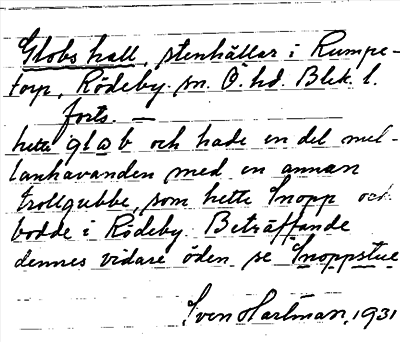 Globs hall, stenhällar i Rumpe-
torp, Rödeby sn. Ö. hd. Blek. l.
forts. —
hette glåb och hade en del mel-
lanhavanden med en annan
trollgubbe, som hette Snopp och
bodde i Rödeby. Beträffande
dennes vidare öden se Snoppstue
Sven Hartman, 1931